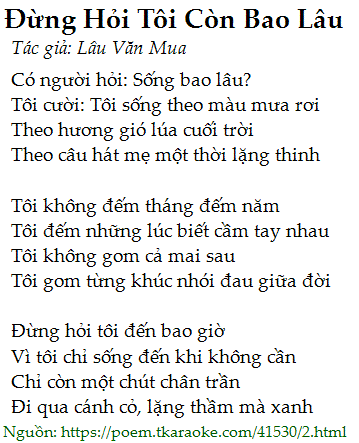 Đừng Hỏi Tôi Còn Bao Lâu
Tác giả: Lâu Văn Mua
Có người hỏi: Sống bao lâu?
Tôi cười: Tôi sống theo màu mưa rơi
Theo hương gió lúa cuối trời
Theo câu hát mẹ một thời lặng thinh
Tôi không đếm tháng đếm năm
Tôi đếm những lúc biết cầm tay nhau
Tôi không gom cả mai sau
Tôi gom từng khúc nhói đau giữa đời
Đừng hỏi tôi đến bao giờ
Vì tôi chỉ sống đến khi không cần
Chỉ còn một chút chân trần
Đi qua cánh cỏ, lặng thầm mà xanh
Nguồn: https://poem.tkaraoke.com/41530/2.html